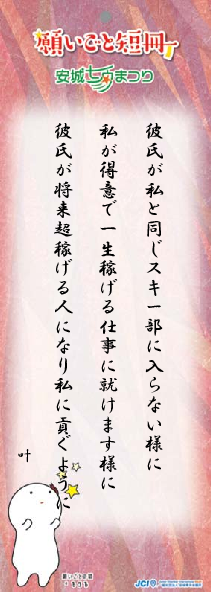 願いごと短冊
安城七夕まつり
彼氏が私と同じスキー部に入らない様に
私が得意で一生稼げる仕事に就けます様に
彼氏が将来超稼げる人になり私に貢ぐように
叶
願いごと短冊
JCI